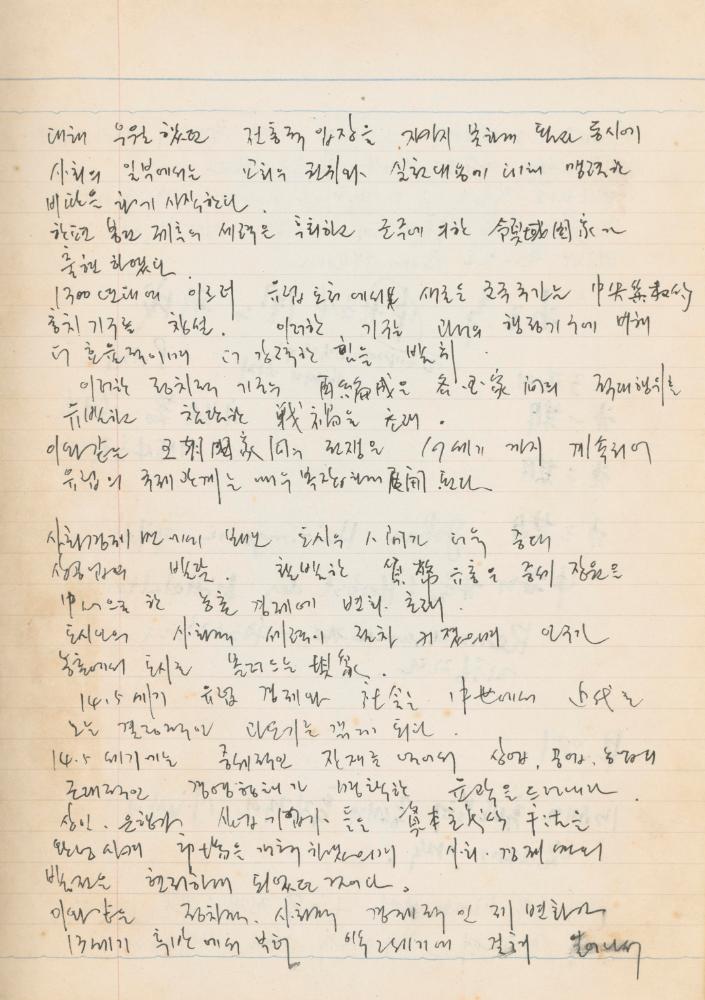 대해 우월했던 전통적 입장을 지키지 못하게 됐고 동시에
사회의 일부에서는 교회의 권위와 실천내용에 대해 맹렬한
비판을 하기 시작한다.
한편 봉건 제후의 세력은 후퇴하고 군주에 의한 領域国家가
출현하였다.
1300년대에 이르러 유럽 도처에서 새로운 군주국가는 中央集权的
통치기구를 창설. 이러한 기구는 과거의 행정기구에 비해
더 효율적이며 더 강력한 힘을 발휘.
이러한 정치적 기구의 再編成은 各国家间의 적대행위를
유발하고 참담한 戦禍를 초래.
이와같은 王朝國家间의 전쟁은 15세기 까지 계속되어
유럽의 국제관계는 매우 복잡하게 展開 된다.
사회경제면에서 보면 도시의 더욱 증대
상공업의 발달. 활발한 貨幣유통은 중세 장원을
中心으로 한 농촌 경제에 변화 초래.
도시인의 사회적 세력이 점차 커졌으며 인구가
농촌에서 도시로 몰려드는 現象.
14.5세기 유럽 경제와 社会는 中世에서 近代로
오는 결정적인 과도기를 겪게 된다.
14.5세기에는 중세적인 잔재를 벗어서 상업, 공업, 농업의
근대적인 경영형태가 명확한 윤곽을 드러내다.
상인, 은행가, 산업기업가 들은 資本主义的 方法을
사회.경제면의
발전은 현저하게 되었던 것이다.
이와같은 정치적, 사회적 경제적인 제 변화가
13세기 후반에서 부터 2세기에 걸쳐 일어나서